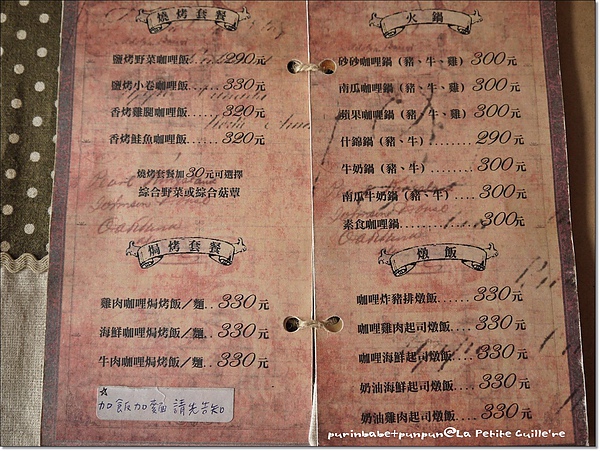 燒烤套餐
鹽烤野菜咖哩飯...290元
鹽烤小卷咖哩飯....330元
香烤雞腿咖哩飯....320元
香烤鮭魚咖哩飯....320元
燒烤套餐加30元可選擇
綜合野菜或綜合菇蕈
焗烤套餐
雞肉咖哩焗烤飯／麵..330元
海鮮咖哩焗烤飯／麵..330元
牛肉咖哩焗烤飯／麵..330元
加飯加麵 請先告知
火鍋
砂砂咖哩鍋(豬、牛、雞) 300元
南瓜咖哩鍋(豬、牛、雞) 300元
蘋果咖哩鍋(豬、牛、雞) 300元
什錦鍋(豬、牛)........290元
牛奶鍋(豬、牛)........300元
南瓜牛奶鍋(豬、牛)....300元
素食咖哩鍋............300元
燉飯
咖哩炸豬排燉飯.....330元
咖哩雞肉起司燉飯....330元
咖哩海鮮起司燉飯....330元
奶油海鮮起司燉飯....330元
奶油雞肉起司燉飯....330元
purinbabetpunpun@La Petite Cuille're